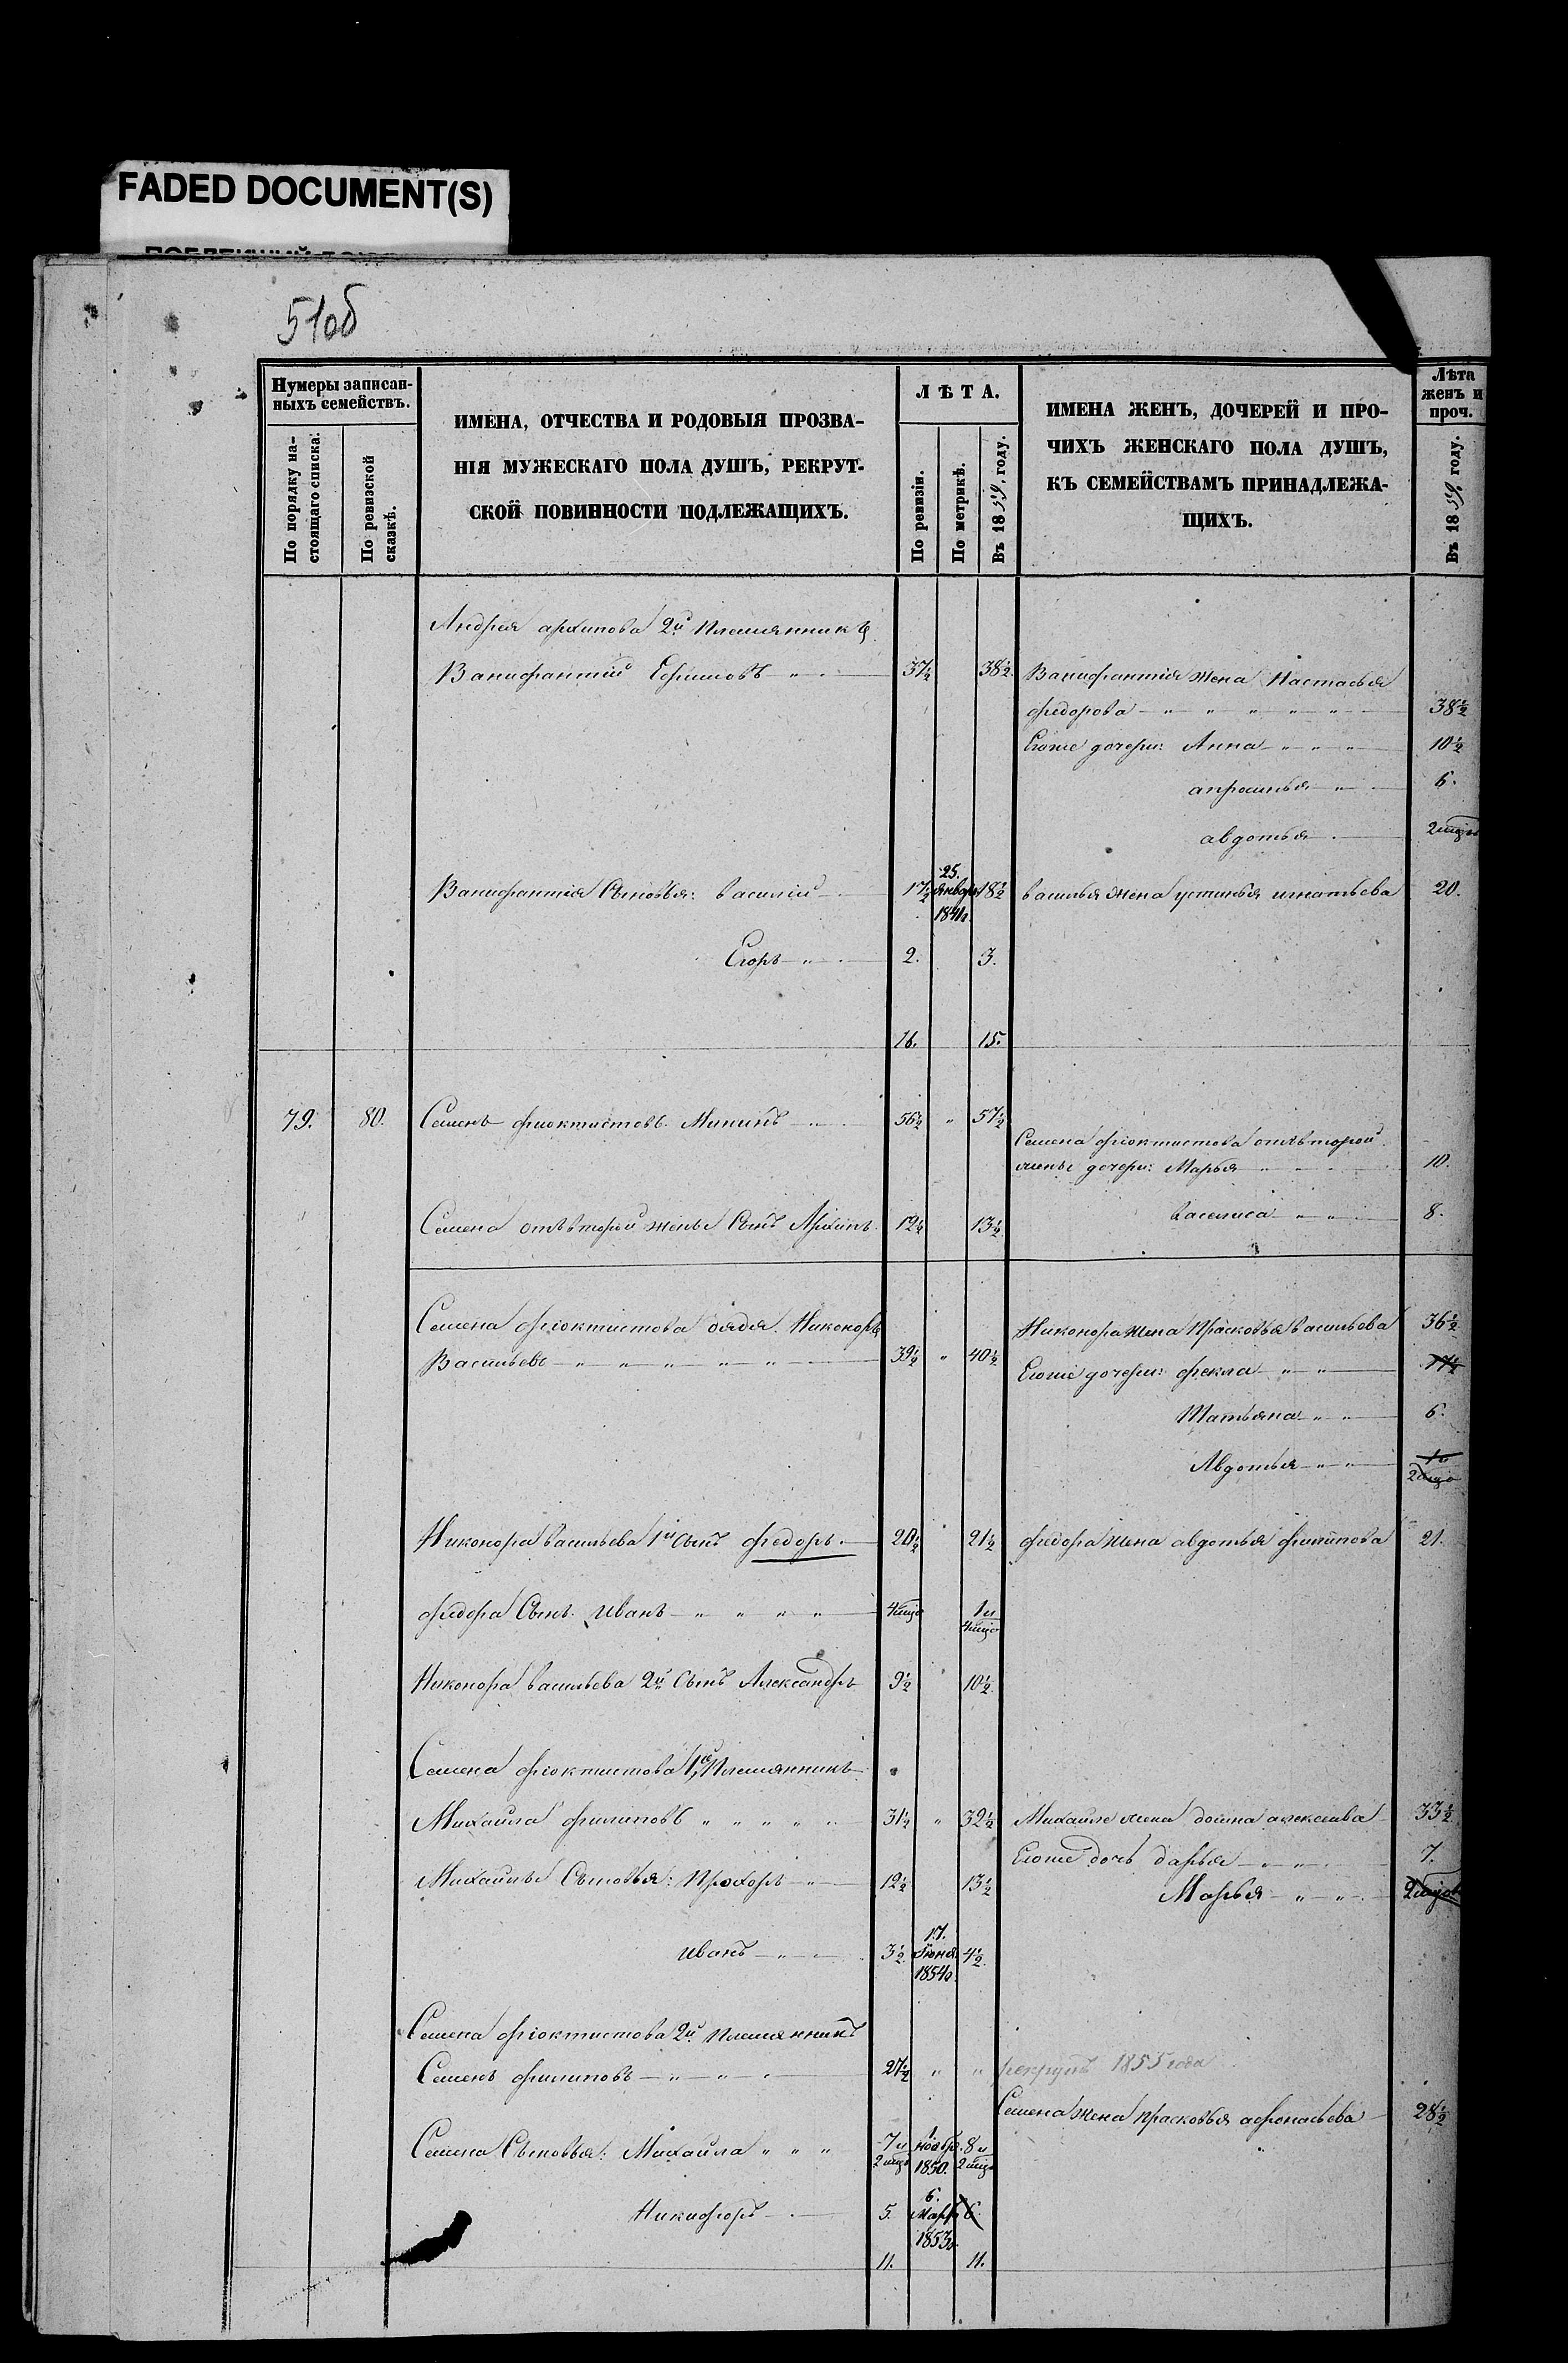 FADED DOCUMENT(S)
51об
Нумеры записан-
ныхъ семействъ.
По порядку на-
стоящаго списка.
По ревизской
сказкѣ.
ИМЕНА, ОТЧЕСТВА И РОДОВЫЯ ПРОЗВА-
НІЯ МУЖЕСКАГО ПОЛА ДУШЪ, РЕКРУТ-
СКОЙ ПОВИННОСТИ ПОДЛЕЖАЩИХЪ.
ЛѢТА.
По ревизіи.
По метрикѣ.
Въ 1859, году.
ИМЕНА ЖЕНЪ, ДОЧЕРЕЙ И ПРО-
ЧИХЪ ЖЕНСКАГО ПОЛА ДУШЪ,
КЪ СЕМЕЙСТВАМЪ ПРИНАДЛЕЖА-
ЩИХЪ.
Лѣта
женъ и
проч.
Въ 1859, году.
Андрея архипова 2й Племянникъ
Ванифантій Ефимовъ 37½ 38½ Ванифантія жена Настасья
федорова 38½
Егоже дочери: Анна 10½
6.
авдотья 2
Ванифантія Сыновья: василій 17½ 25. января 1841г. 18½ василья жена устинья игнатьева 20.
Егоръ 2. 3.
16. 15.
79. 80. Семенъ фиоктистовъ Мининъ 56½ " 57½
Семена фіоктистова отъ второй
жены дочери: Марья 10.
Семена отъ второй жены Сынъ Архипъ 12½ 13½ василиса 8.
Семена фіоктистова дядя Никоноръ
Васильевъ 39½ " 40½
Никонора жена Прасковья васильева 36½
Егоже дочери: фекла 17½
Татьяна 6.
Авдотья 1 и 2
Никонора васильева 1й Сынъ федоръ. 20½ 21½ федора жена авдотья филипова 21.
федора Сынъ Иванъ 4 1 и 4
Никонора васильева 2й Сынъ Александръ 9½ 10½
Семена фіоктистова 1й Племянникъ
Михайла филиповъ 31½ " 32½ Михайлы жена домна алексеева 33½
Егоже дочь дарья 7.
Михайлы Сыновья: Прохоръ 12½ 13½ Марья 2
иванъ 3½ 17. Іюня 1854г. 4½
Семена фіоктистова 2й Племянникъ
Семенъ филиповъ 27½ " " рекрутъ 1855 года
Семена жена прасковья афонасьева 28½
Семена Сыновья: Михайла 7 и 2 1 ноябр. 1850. 8 и 2
Никифоръ 5. 6. Мар 1853г. 6.
11. 11.